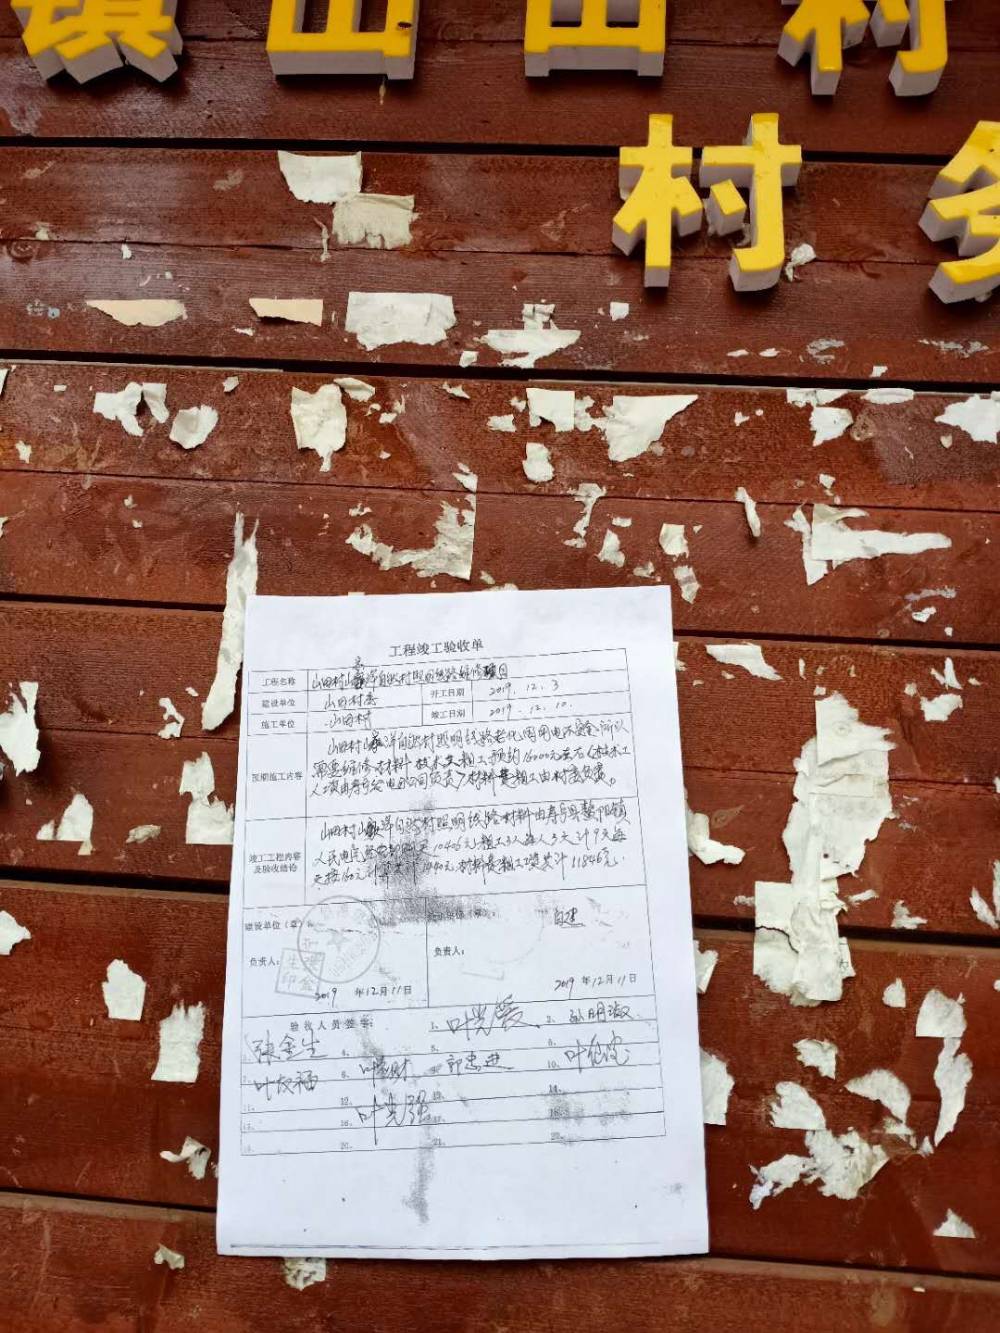 镇山田村
村务
工程竣工验收单
工程名称 山田村 自然村照明线路维修项目
建设单位 山田村委 开工日期 2019.12.3
施工单位 山田村 竣工日期 2019.12.10.
预期施工内容
山田村 自然村照明线路老化因用电不安全,所以
需要维修,材料 技术工 粗工,预约16000元左右(技术工
人工资由寿宁 电力公司负责)材料 粗工由村委负责。
竣工工程内容
及验收结论
山田村 自然村照明线路材料由寿宁县 阳镇
10406元,粗工3人每人3天计9天每
天按160元计算共计1440元,材料 粗工工资共计11846元.
建设单位(章) 自建
负责人: 负责人:
2019 年12月11日 2019 年12月11日
验收人员签字: 1、叶光 2、
张金生 4、 5、 6、
7、叶友福 8、 郭忠进 10、
11、 12、 13、 14、
15、 16、叶光强 17、 18、
19、 20、 21、 22、